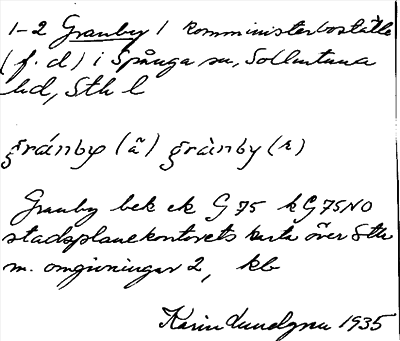 1-2 Granby 1 komministerboställe
(f. d) i Spånga sn, Sollentuna
hd, Sth l
gránby (ã) grànby (r)
Granby bek ek G 75 kG75NO
stadsplanekontorets karta över Sthm
m. omgivningar 2, kb
Karin Lundgren 1935